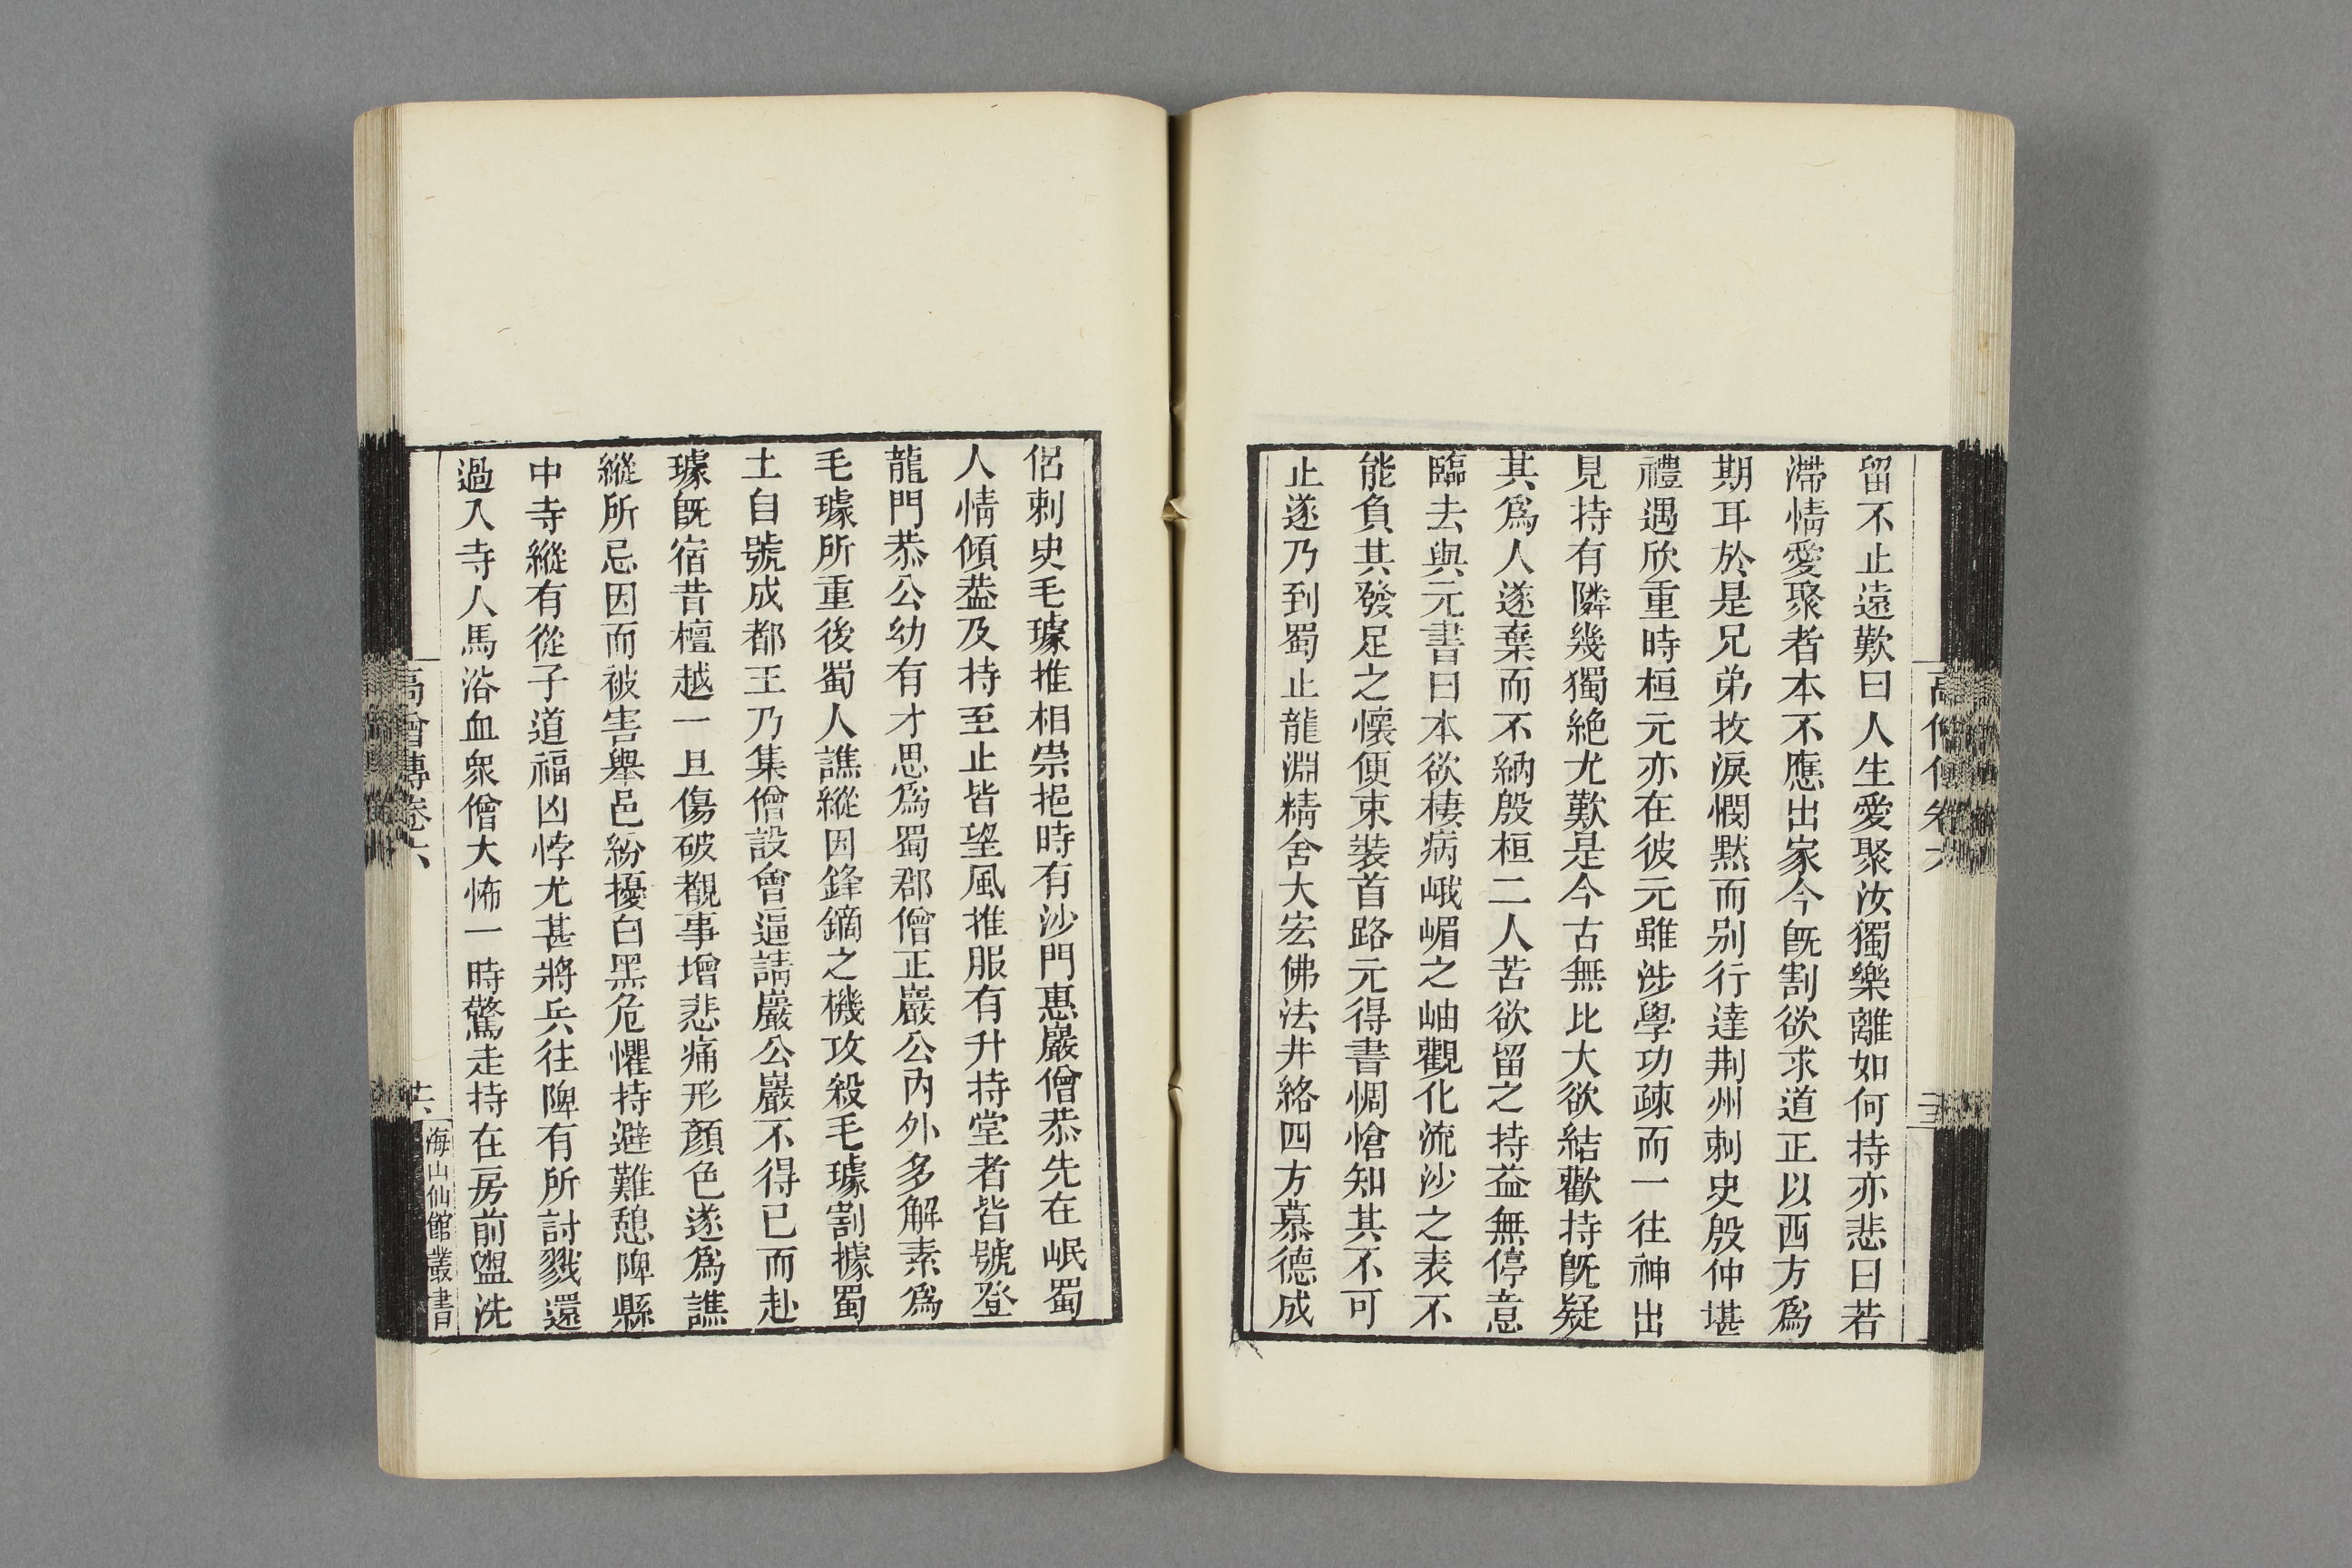 留不止遠歎曰人生愛聚汝獨樂離如何持亦悲曰若
滯情愛聚者本不應出家今旣割欲求道正以西方爲
期耳於是兄弟抆淚憫默而别行達荆州刺史殷仲堪
禮遇欣重時桓元亦在彼元雖涉學功疎而一往神出
見持有隣幾獨絶尤歎是今古無比大欲結歡持旣疑
其爲人遂棄而不納殷桓二人苦欲留之持益無停意
臨去與元書曰本欲棲病峨嵋之岫觀化流沙之表不
能負其發足之懷便束裝首路元得書惆愴知其不可
止遂乃到蜀止龍淵精舍大宏佛法井絡四方慕德成
侶刺史毛璩推相崇挹時有沙門惠巖僧恭先在岷蜀
人情傾葢及持至止皆望風推服有升持堂者皆號登
龍門恭公幼有才思爲蜀郡僧正巖公內外多解素爲
毛璩所重後蜀人譙縱因鋒鏑之機攻殺毛璩割據蜀
土自號成都王乃集僧設會逼請巖公巖不得已而赴
璩旣宿昔檀越一旦傷破覩事增悲痛形顏色遂爲譙
縱所忌因而被害舉邑紛擾白黑危懼持避難憩陴縣
中寺縱有從子道福凶悖尤甚將兵往陴有所討戮還
過入寺人馬浴血衆僧大怖一時驚走持在房前盥洗
高僧傳卷六
海山仙館叢書